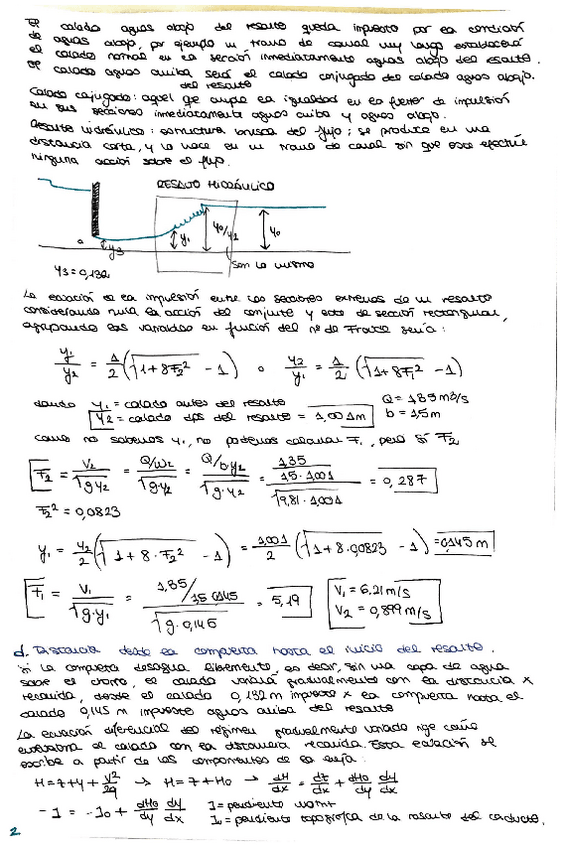 El calado aguas abajo del resalto queda impuesto por la condición
de aguas abajo, por ejemplo un tramo de canal muy largo establecerá
el calado normal en la sección inmediatamente aguas abajo del resalto.
El calado aguas arriba será el calado conjugado del calado aguas abajo.
del resalto
Calado conjugado: aquel que cumple la igualdad en la fuerza de impulsión
en sus secciones inmediatamente aguas arriba y aguas abajo.
Resalto hidráulico: estructura brusca del flujo; se produce en una
distancia corta, y lo hace en un tramo de canal sin que este efectúe
ninguna acción sobre el flujo.
RESALTO HIDRÁULICO
y3 y1 y0/y2 y0
y3 = 0,132
son lo mismo
La ecuación es la impulsión entre las secciones extremas de un resalto
considerando nula la acción del conjunto y este de sección rectangular,
agrupando las variables en función del nº de Froude sería:
y1/y2 = 1/2 (√(1+8F2²) - 1) o y2/y1 = 1/2 (√(1+8F1²) - 1)
dando y1 = calado antes del resalto Q = 1,35 m3/s
y2 = calado dps del resalto = 1,001m b = 1,5m
Como no sabemos y1, no podemos calcular F1, pero sí F2
F2 = V2/√(g·y2) = Q/w2/√(g·y2) = Q/b·y2/√(g·y2) = 1,35/1,5·1,001/√(9,81·1,001) = 0,287
F2² = 0,0823
y1 = y2/2 (√(1+8·F2²) - 1) = 1,001/2 (√(1+8·0,0823) - 1) = 0,145 m
F1 = V1/√(g·y1) = 1,35/1,5·0,145/√(g·0,145) = 5,19 V1 = 6,21 m/s
V2 = 0,899 m/s
d. Distancia desde la compuerta hasta el inicio del resalto.
Si la compuerta desagua libremente, es decir, sin una capa de agua
sobre el chorro, el calado variará gradualmente con la distancia x
recorrida, desde el calado 0,132 m impuesto x la compuerta hasta el
calado 0,145 m impuesto aguas arriba del resalto
La ecuación diferencial del régimen gradualmente variado rige como
evoluciona el calado con la distancia recorrida. Esta ecuación se
escribe a partir de los componentes de la energía:
H = z+y+V²/2g → H = z+H0 → dH/dx = dz/dx + dH0/dy dy/dx
-I = -I0 + dH0/dy dy/dx I = pendiente motriz
I0 = pendiente topográfica de la rasante del conducto.
2